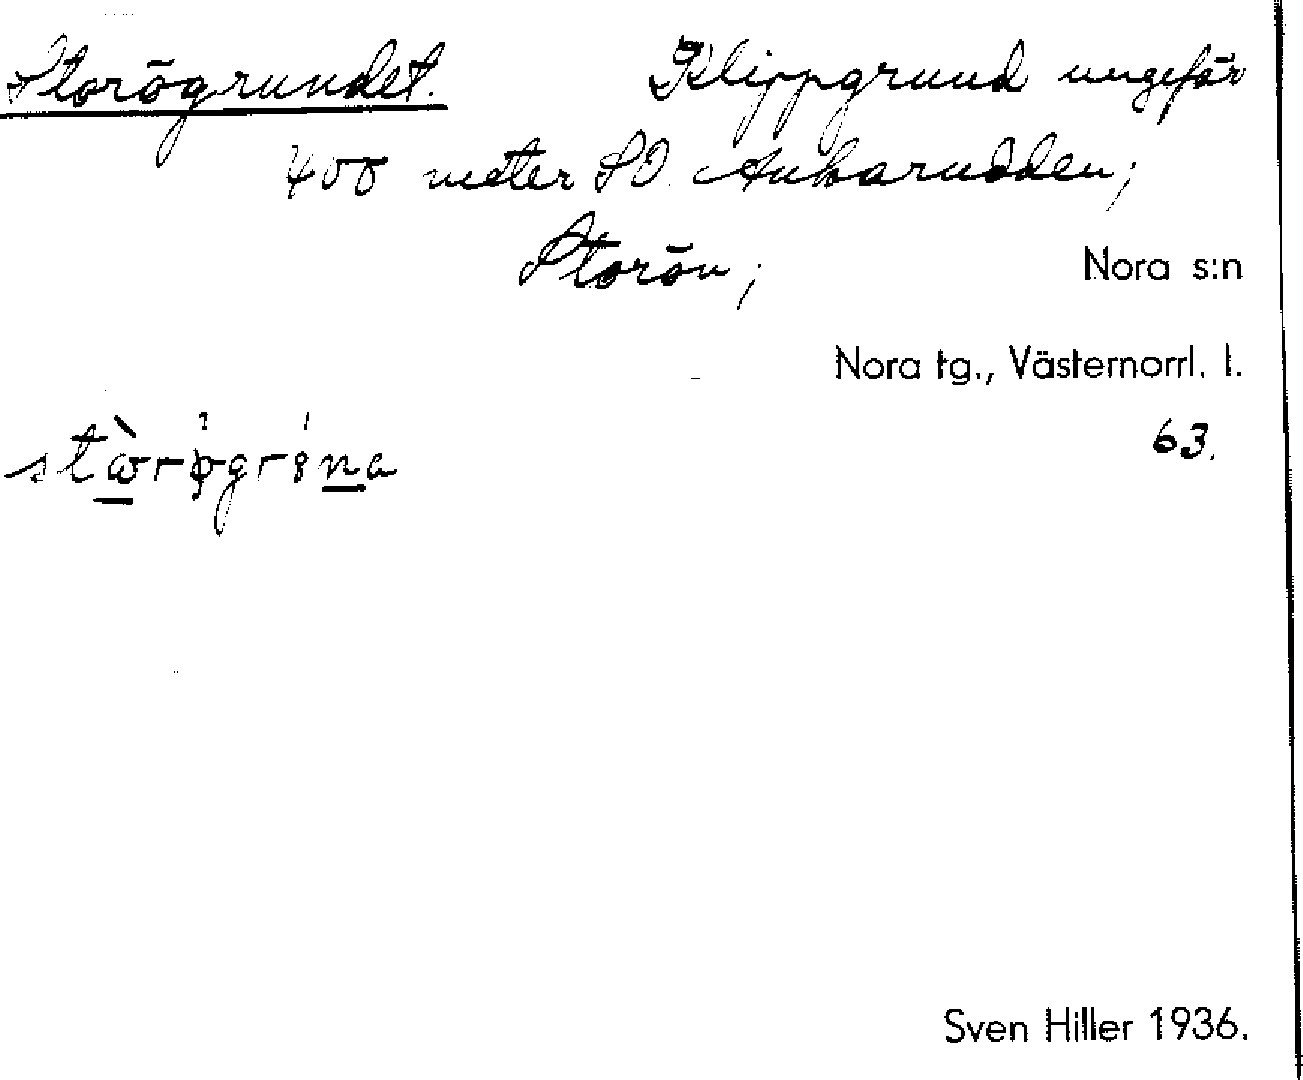 Storögrundet. Klippgrund ungefär
400 meter SO. Ankarudden;
Storön;
Nora s:n
Nora tg., Västernorrl. l.
63.
Sven Hiller 1936.